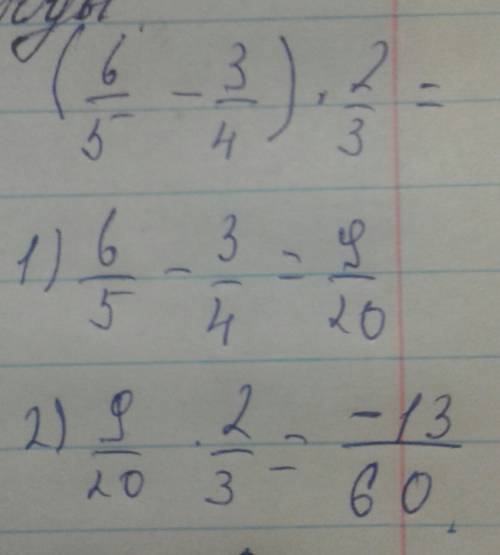 (6/5 - 3/4) · 2/3 =
1) 6/5 - 3/4 = 9/20
2) 9/20 · 2/3 = -13/60